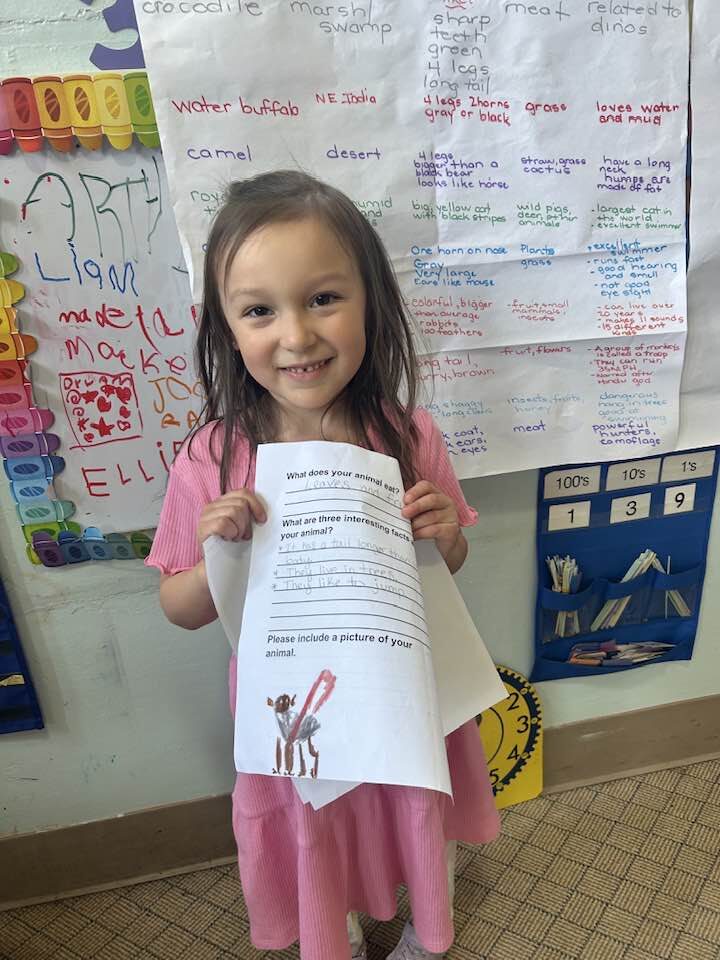 crocodile marsh/ swamp sharp teeth green 4 legs long tail meat related to dinos
water buffalo NE India 4 legs 2horns gray or black grass loves water and mud
camel desert 4 legs bigger than a black bear looks like horse straw, grass cactus have a long neck humps are made of fat
big yellow cat with black stripes wild pigs, deer, other animals -largest cat in the world -excellent swimmer
One horn on nose Gray Very large Ears like mouse Plants grass -excellent swimmer -runs fast -good hearing and smell -not good eye sight
-colorful, bigger than average rabbits 100 feathers -fruit, small mammals, insects -can live over 20 years -makes 11 sounds -15 different kinds
tail, furry, brown fruit, flowers -A group of monkeys is called a troop -They can run 35MPH -Named after Hindu god
shaggy long claws insects, fruits, honey dangerous hang in trees good at swimming
coat, ears, eyes meat powerful hunters, camoflage
ARTH
Liam
made
Mack
ELLIE
What does your animal eat?
Leaves and
What are three interesting facts
your animal?
* It has a tail longer than
body
* They live in trees
* They like to jump
Please include a picture of your
animal.
100's 10's 1's
1 3 9
2
3
4
5